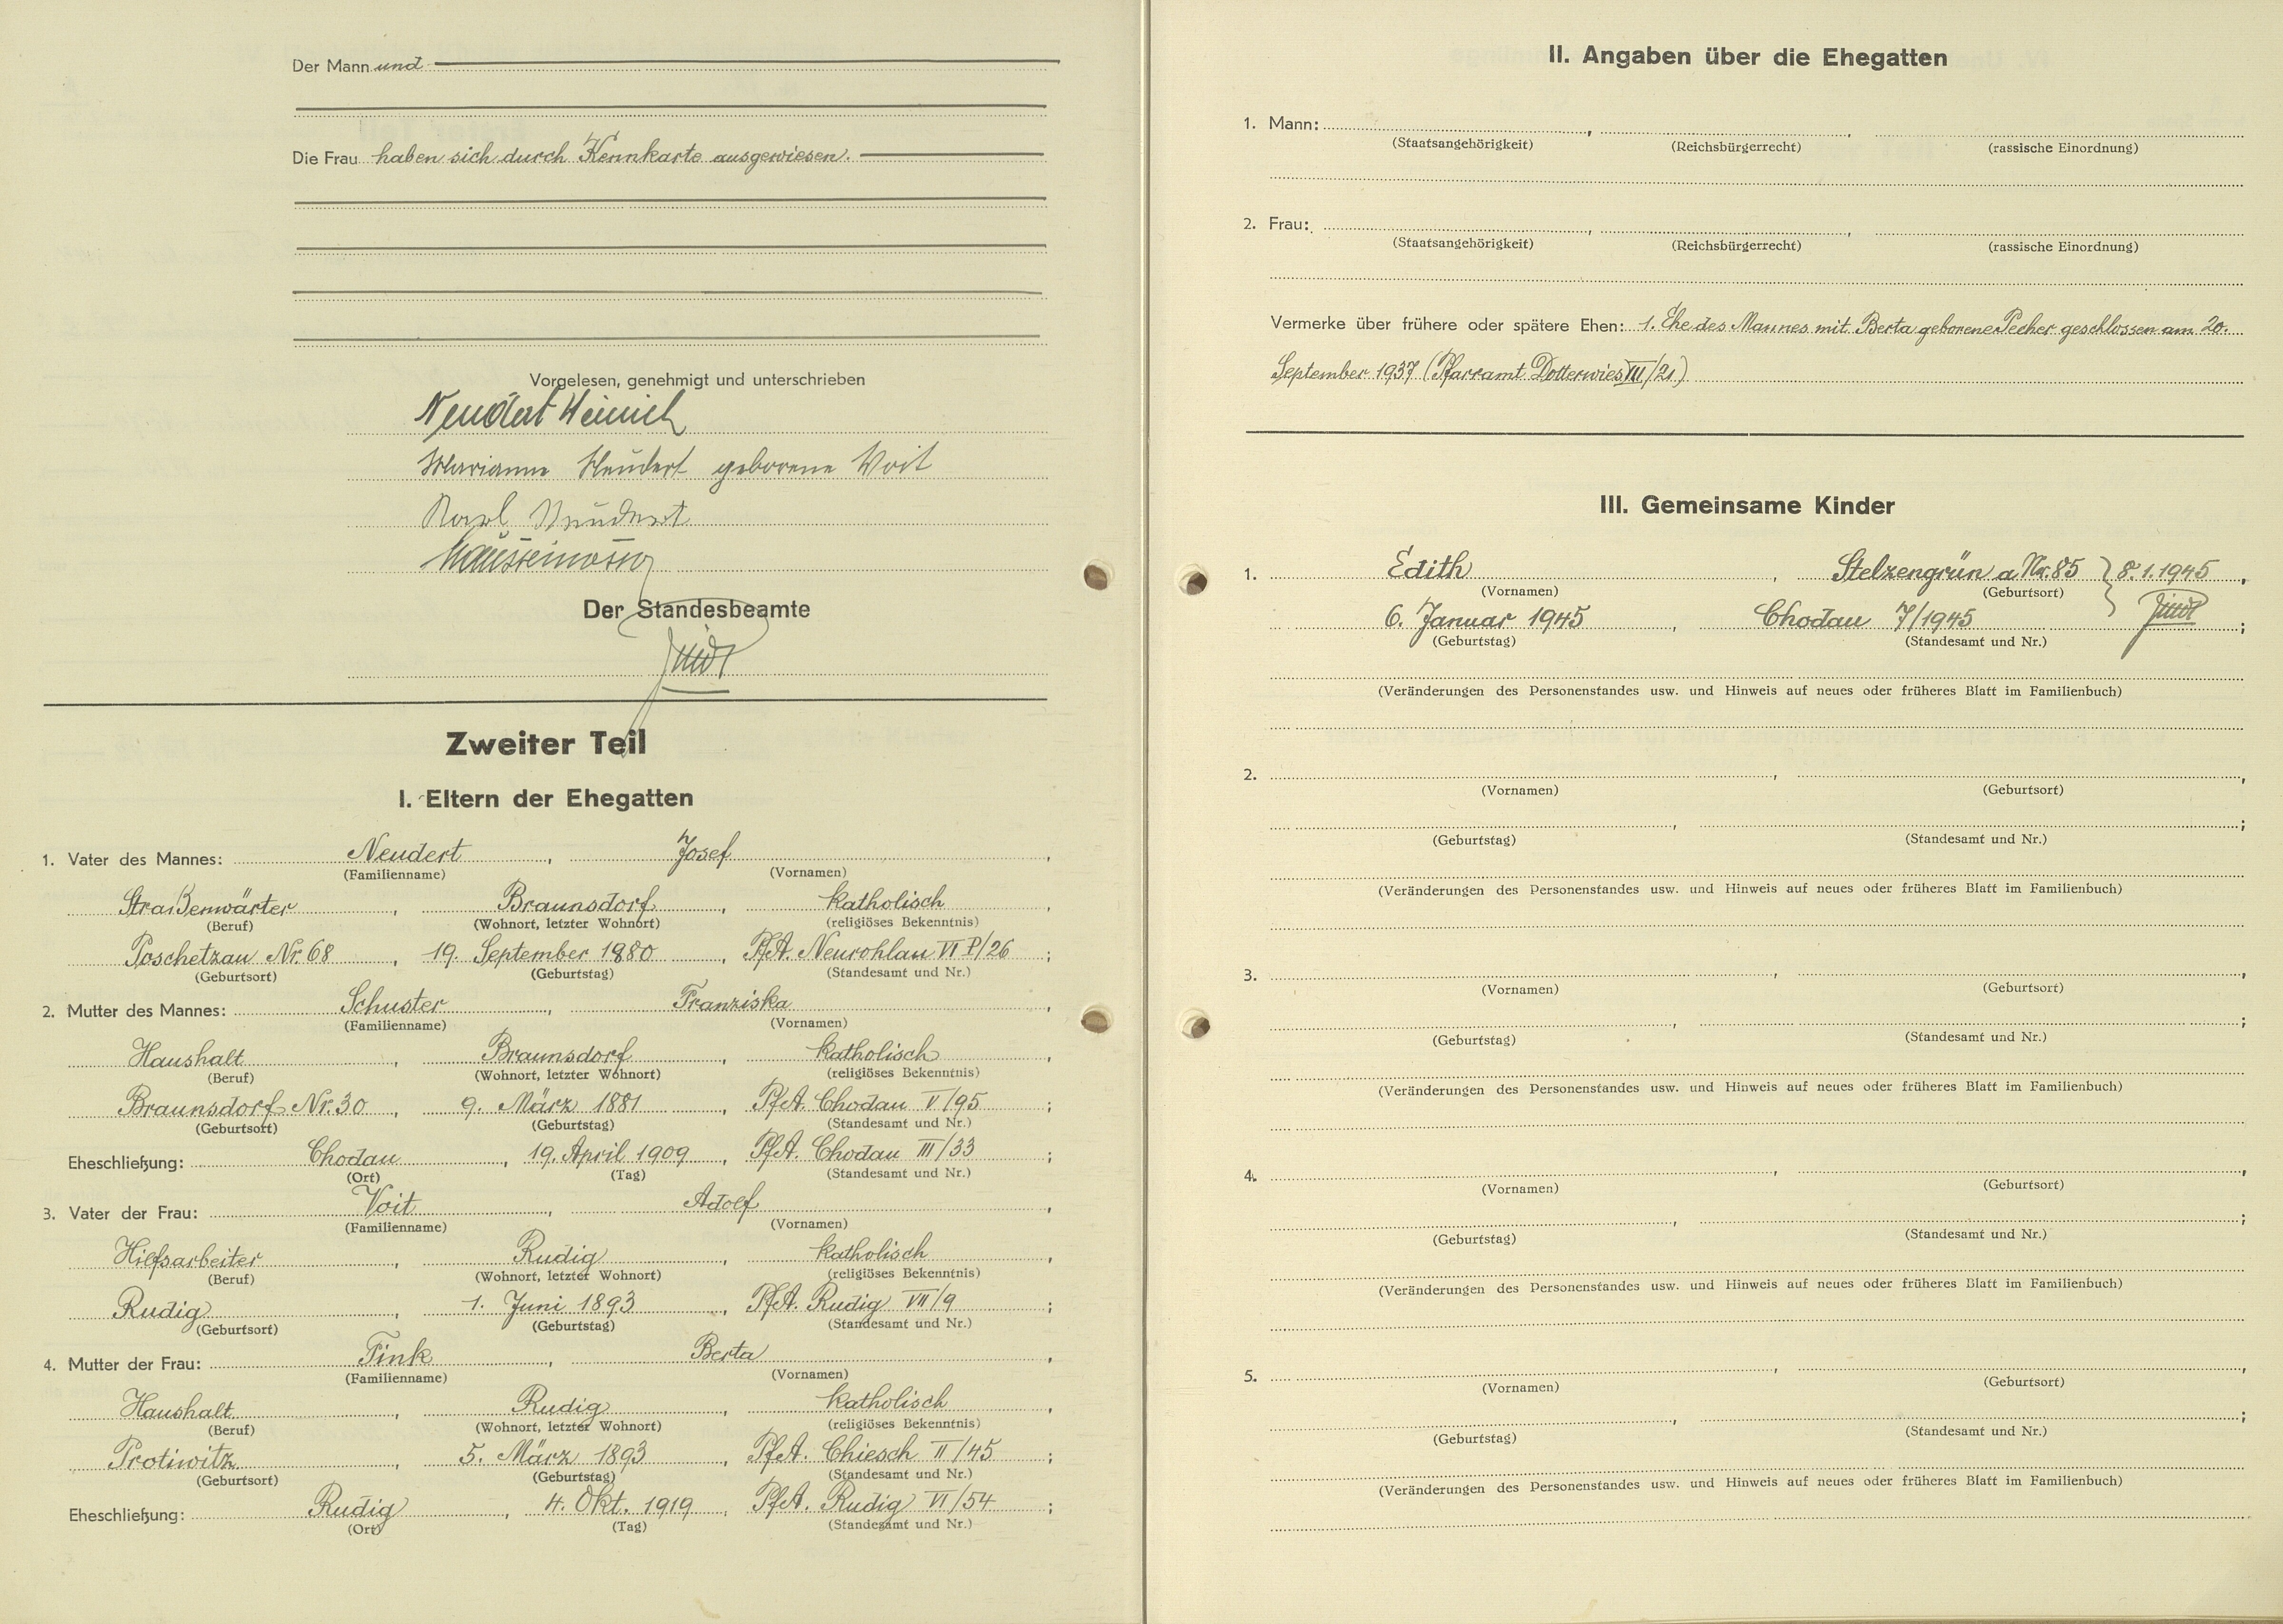 Der Mann und
Die Frau haben sich durch Kennkarte ausgewiesen.
Vorgelesen, genehmigt und unterschrieben
Neudert Heinrich
Marianne Neudert geborene Voit
Karl Neudert
Der Standesbeamte
Zweiter Teil
I. Eltern der Ehegatten
1. Vater des Mannes: Neudert, Josef,
(Familienname) (Vornamen)
Straßenwärter, Braunsdorf, katholisch,
(Beruf) (Wohnort, letzter Wohnort) (religiöses Bekenntnis)
Poschetzau Nr. 68, 19. September 1880, PfA. Neurohlau VI P/26;
(Geburtsort) (Geburtstag) (Standesamt und Nr.)
2. Mutter des Mannes: Schuster, Franziska,
(Familienname) (Vornamen)
Haushalt, Braunsdorf, katholisch,
(Beruf) (Wohnort, letzter Wohnort) (religiöses Bekenntnis)
Braunsdorf Nr. 30, 9. März 1881, PfA. Chodau V/95;
(Geburtsort) (Geburtstag) (Standesamt und Nr.)
Eheschließung: Chodau, 19. April 1909, PfA. Chodau III/33;
(Ort) (Tag) (Standesamt und Nr.)
3. Vater der Frau: Voit, Adolf,
(Familienname) (Vornamen)
Hilfsarbeiter, Rudig, katholisch,
(Beruf) (Wohnort, letzter Wohnort) (religiöses Bekenntnis)
Rudig, 1. Juni 1893, PfA. Rudig VII/9;
(Geburtsort) (Geburtstag) (Standesamt und Nr.)
4. Mutter der Frau: Fink, Berta,
(Familienname) (Vornamen)
Haushalt, Rudig, katholisch,
(Beruf) (Wohnort, letzter Wohnort) (religiöses Bekenntnis)
Protiwitz, 5. März 1893, PfA. Chiesch II/45;
(Geburtsort) (Geburtstag) (Standesamt und Nr.)
Eheschließung: Rudig, 4. Okt. 1919, PfA. Rudig VI/54;
(Ort) (Tag) (Standesamt und Nr.)
II. Angaben über die Ehegatten
1. Mann: , ,
(Staatsangehörigkeit) (Reichsbürgerrecht) (rassische Einordnung)
2. Frau: , ,
(Staatsangehörigkeit) (Reichsbürgerrecht) (rassische Einordnung)
Vermerke über frühere oder spätere Ehen: 1. Ehe des Mannes mit Berta geborene Pecher geschlossen am 20.
September 1937 (Pfarramt Dotterwies VII/21)
III. Gemeinsame Kinder
1. Edith, Stelzengrün a Nr. 85 } 8.1.1945,
(Vornamen) (Geburtsort)
6. Januar 1945, Chodau 7/1945;
(Geburtstag) (Standesamt und Nr.)
(Veränderungen des Personenstandes usw. und Hinweis auf neues oder früheres Blatt im Familienbuch)
2. , ,
(Vornamen) (Geburtsort)
, ;
(Geburtstag) (Standesamt und Nr.)
(Veränderungen des Personenstandes usw. und Hinweis auf neues oder früheres Blatt im Familienbuch)
3. , ,
(Vornamen) (Geburtsort)
, ;
(Geburtstag) (Standesamt und Nr.)
(Veränderungen des Personenstandes usw. und Hinweis auf neues oder früheres Blatt im Familienbuch)
4. , ,
(Vornamen) (Geburtsort)
, ;
(Geburtstag) (Standesamt und Nr.)
(Veränderungen des Personenstandes usw. und Hinweis auf neues oder früheres Blatt im Familienbuch)
5. , ,
(Vornamen) (Geburtsort)
, ;
(Geburtstag) (Standesamt und Nr.)
(Veränderungen des Personenstandes usw. und Hinweis auf neues oder früheres Blatt im Familienbuch)